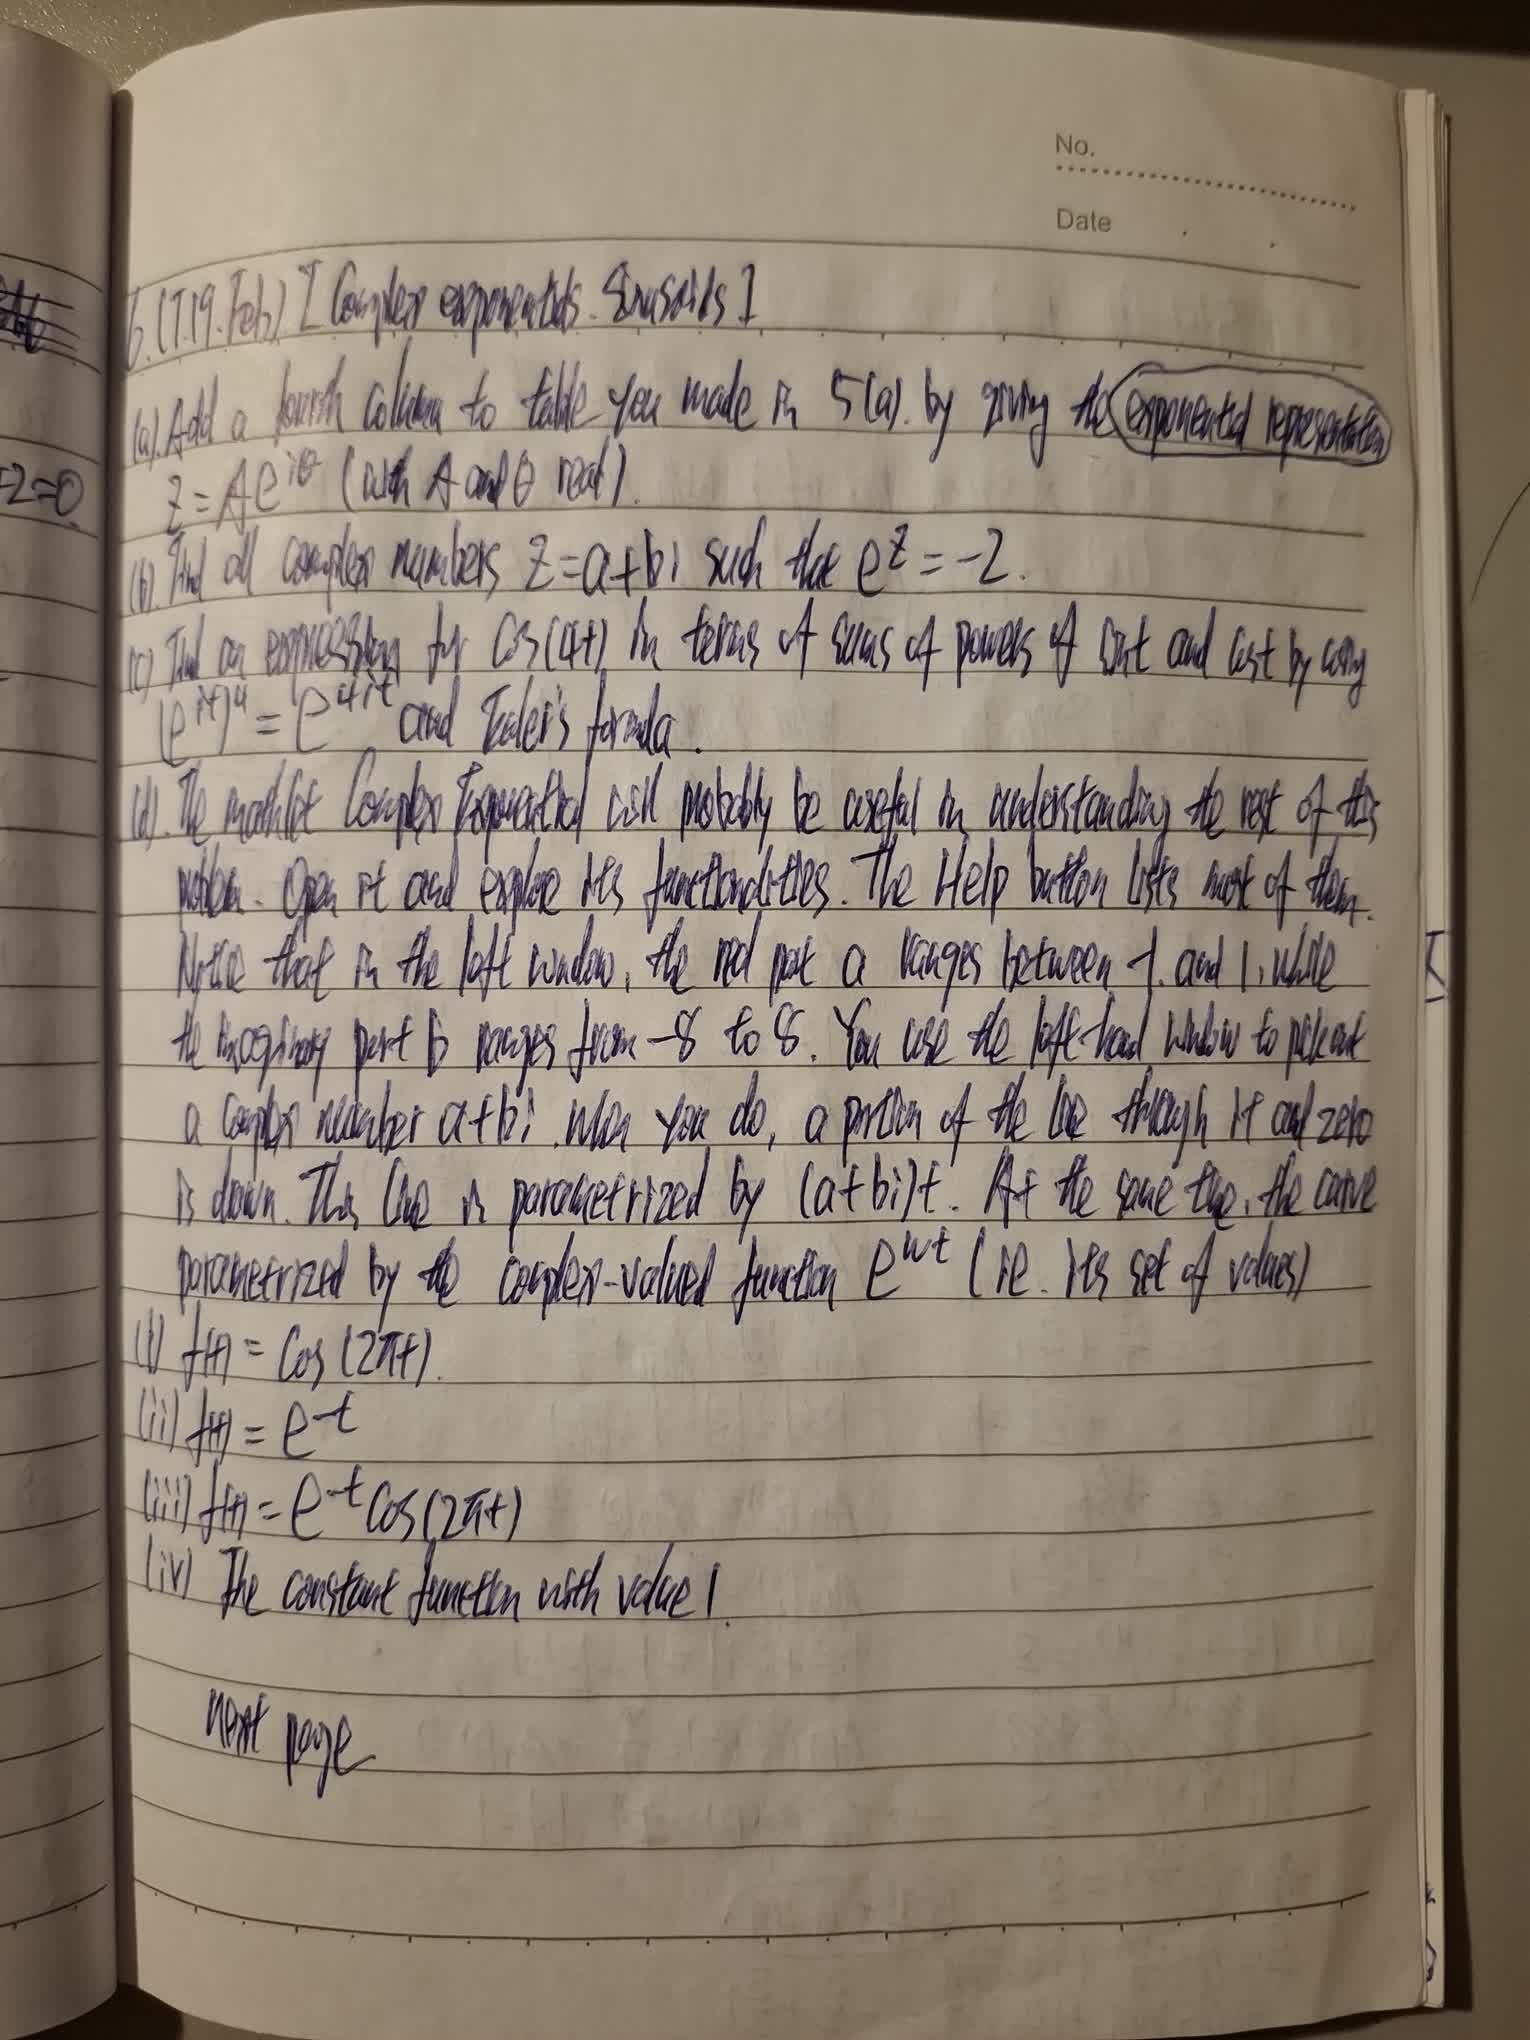 No.
Date
6. (T.19.Feb) [Complex exponentials. Sinusoids]
(a). Add a fourth column to table you made in 5(a). by giving the exponential representation
z = Ae^{iθ} (with A and θ real).
+2=0
(b). Find all complex numbers z = a+bi such that e^z = -2.
(c) Find an expression for cos(4t) in terms of sums of powers of sint and cost by using
(e^{it})^4 = e^{4it} and Euler's formula.
(d). The mathlet Complex Exponential will probably be useful in understanding the rest of this
problem. Open it and explore its functionalities. The Help button lists most of them.
Notice that in the left window, the real part a ranges between -1 and 1, while
the imaginary part b ranges from -8 to 8. You use the left-hand window to pick out
a complex number a+bi. When you do, a portion of the line through it and zero
is drawn. This line is parametrized by (a+bi)t. At the same time, the curve
parametrized by the complex-valued function e^{wt} (ie. its set of values)
(i) f(t) = cos(2πt).
(ii) f(t) = e^{-t}
(iii) f(t) = e^{-t} cos(2πt)
(iv) The constant function with value 1.
next page